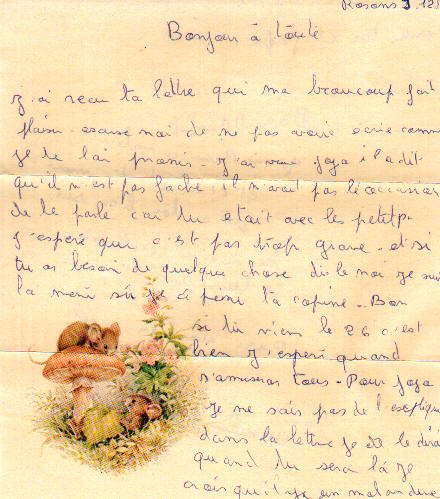 Rosans
Bonjour à toute
J'ai recu ta lettre qui ma beaucoup fait
plaisir. escuse moi de ne pas avoire ecrie comme
je te l'ai promis. J'ai vue Jojo il a dit
qu'il n'est pas faché il n'avait pas l'occassion
de te parlé car tu etait avec les petits.
J'esperè que c'est pas trop grave. et si
tu as besoin de quelque chose dis le moi je suis
la meme si je
Bon
si tu vien le 26 c'est
bien j'esperè quand
s'amuseras tous. Pour Jojo
je ne sais pas de l'
dans la lettre je te le dirai
quand tu sera là je
crois qu'il ya un malentendu